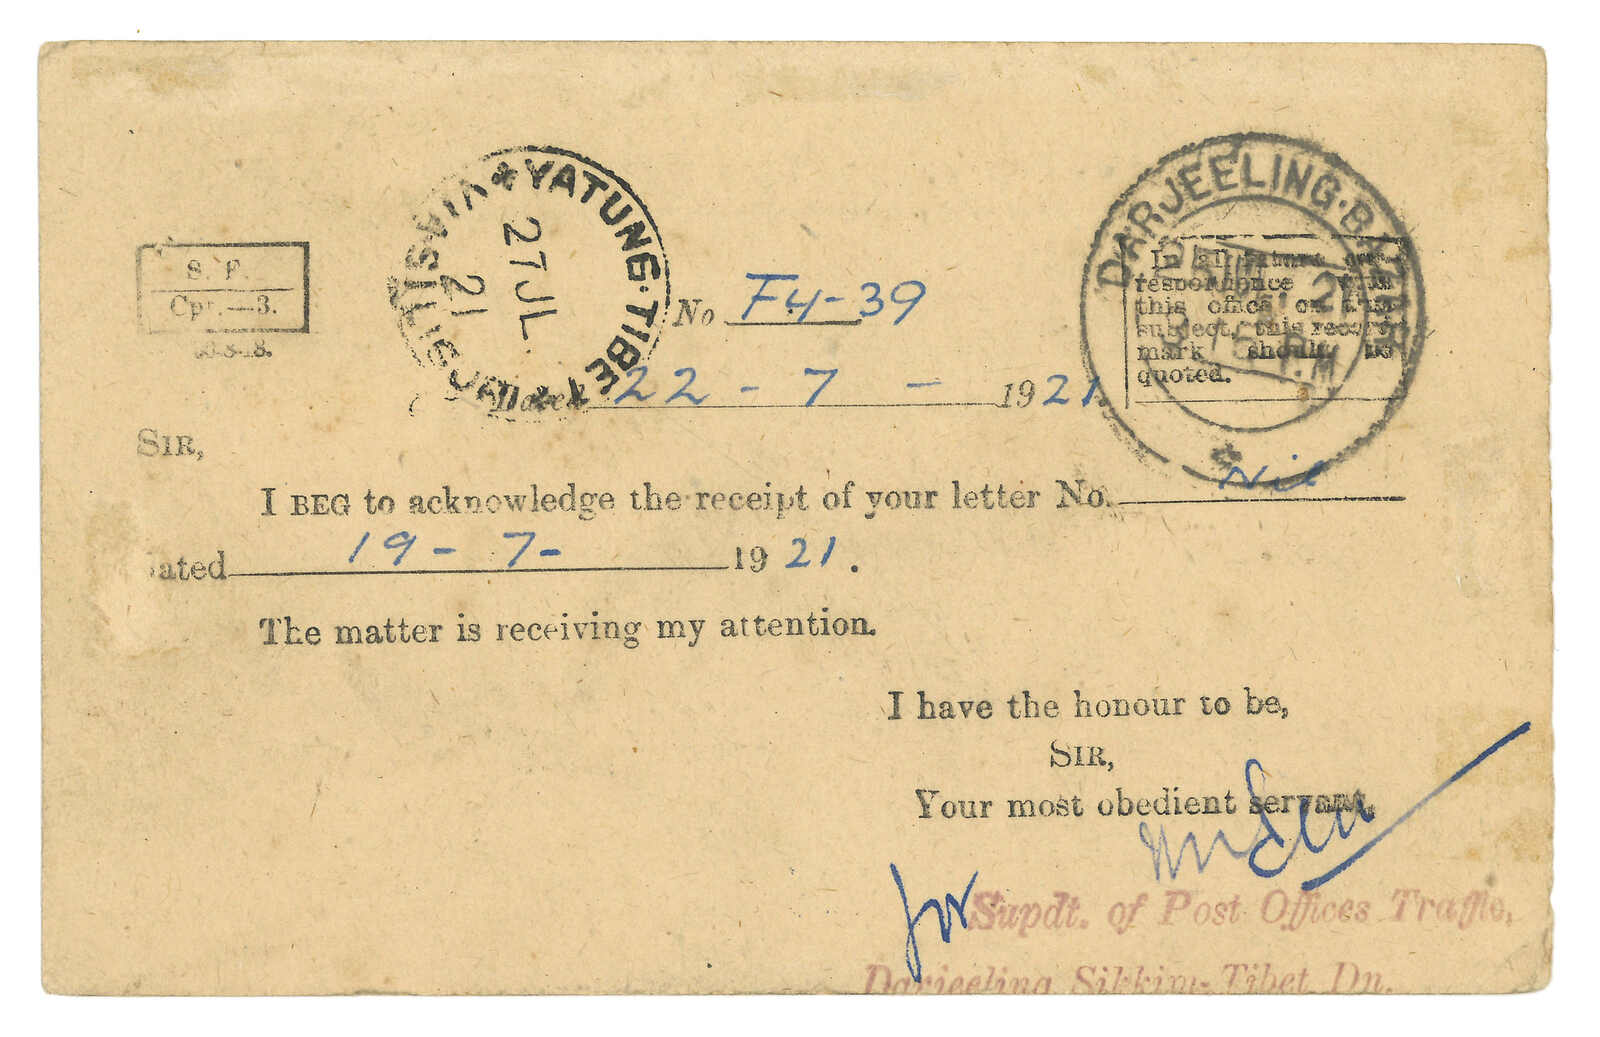 YATUNG·TIBET
VIA SILIGURI
27 JL
21
DARJEELING·
S. F.
Cpr.—3.
In all future cor-
respondence with
this office on this
subject, this record
mark should be
quoted.
No F4-39
Dated 22 - 7 - 1921.
SIR,
I BEG to acknowledge the receipt of your letter No. Nil
dated 19 - 7 - 1921.
The matter is receiving my attention.
I have the honour to be,
SIR,
Your most obedient servant,
for
Supdt. of Post Offices Traffic,
Darjeeling Sikkim-Tibet Dn.